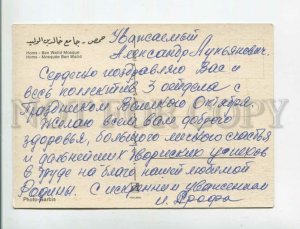 حمص - جامع خالد بن الوليد
Homs - Ben Walid Mosque
Homs - Mosquée Ben Walid
Уважаемый
Александр Лукьянович.
Сердечно поздравляю Вас и
весь коллектив 3 отдела с
праздником Великого Октября.
Желаю всем вам доброго
здоровья, большого личного счастья
и дальнейших творческих успехов
в труде на благо нашей любимой
Родины. С искренним уважением